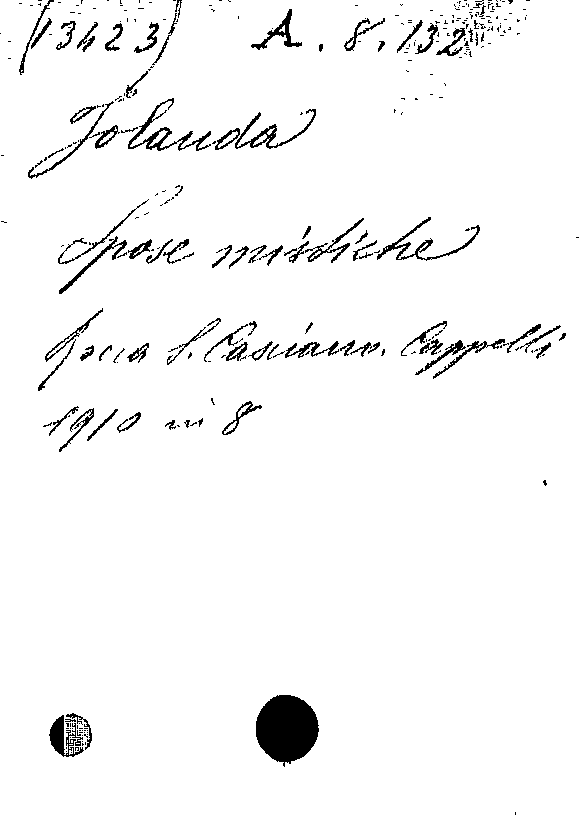 (13423) A. 8. 132
Jolanda
Spose mistiche
Rocca S. Casciano. Cappelli
1910 in 8